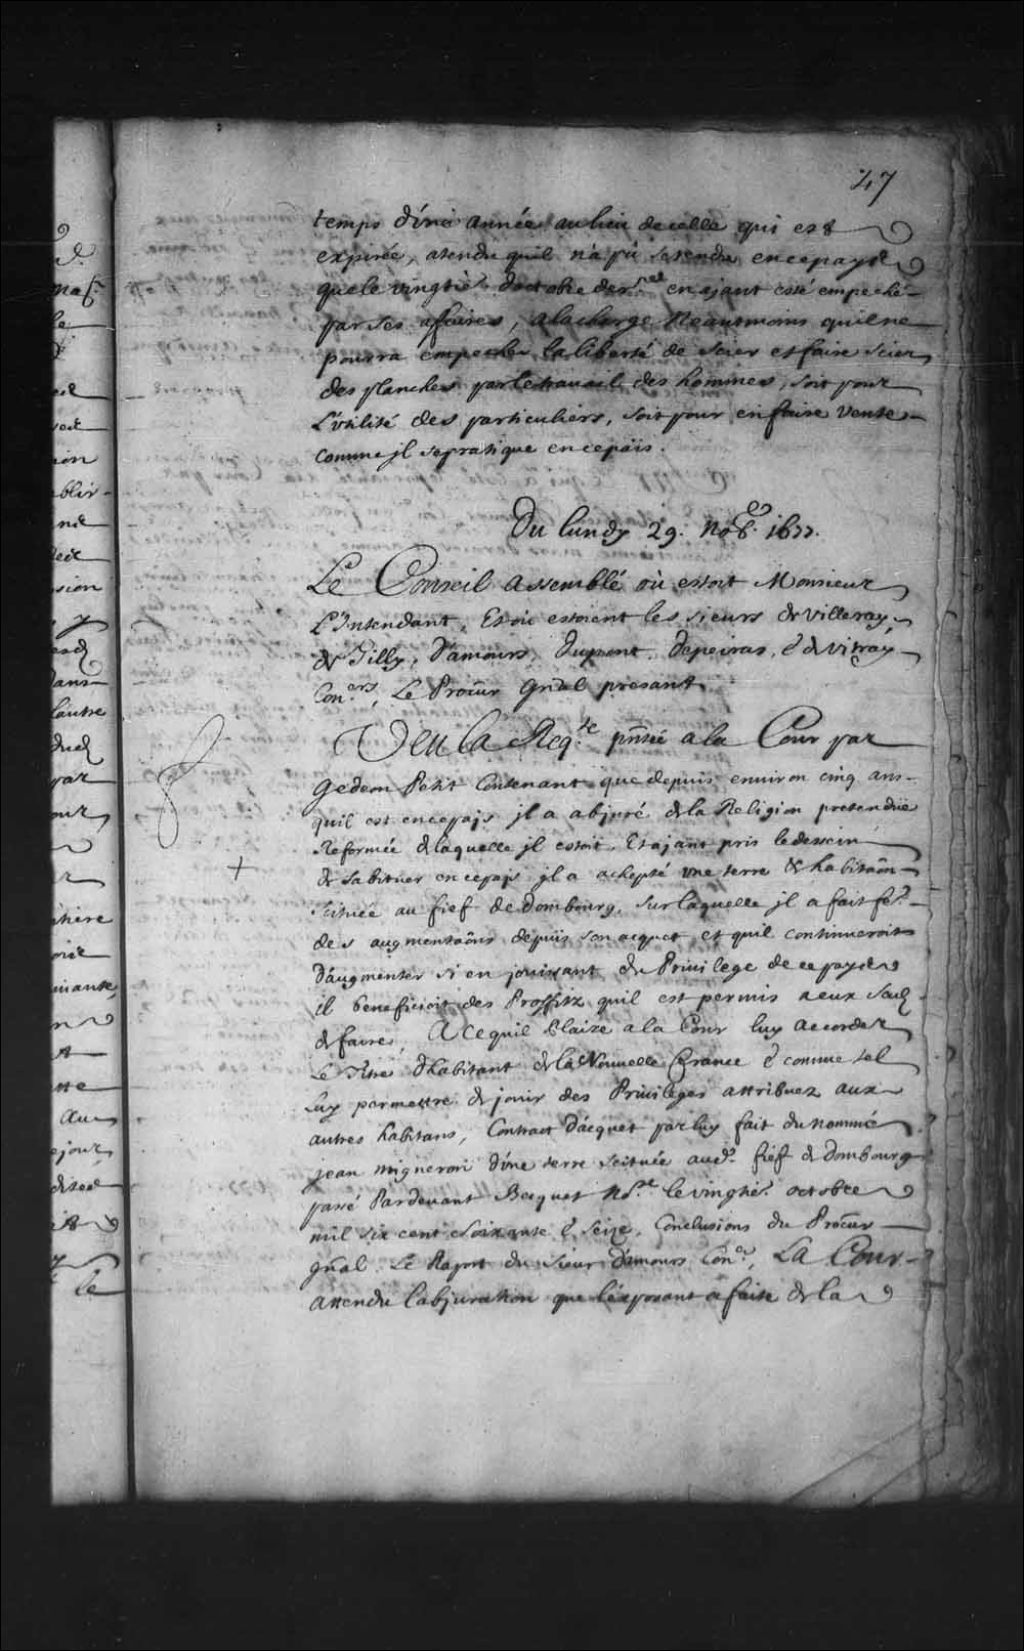 47
temps d'une année au lieu de celle qui est
expirée, atendu quil n'a pû se rendre en ce pays
que le vingtiē. d'octobre der.^r en ajant esté empeché
par ses affaires, a la charge Neantmoins quil ne
pourra empecher la liberté de scier et faire scier
des planches par le travail des hommes, soit pour
L'utilité des particuliers, soit pour en faire vente
comme jl se pratique en ce päis.
Du lundy 29. No8.^e 1677.
Le Conseil assemblé où estoit Monsieur
L'Intendant, Et où estoient les sieurs de Villeray,
de Tilly, Damours, Dupont, Depeiras, & de Vitray
Con.^ers, Le Procūr Gnāl presant
Veu la Req.^te pn̄tée a la Cour par
Gedeon Petit Contenant que depuis environ cinq ans
quil est en ce pays jl a abjuré de la Religion pretendüe
Reformée de laquelle jl estoit, Et ajant pris le dessein
+
de sabituer en ce pays jl a achepté une terre & habitaōn
scituée au fief de Dombourg, sur laquelle jl a fait fē.^e
des augmentaōns depuis son acquet, et quil continueroit
d'augmenter si en jouissant du Privilege de ce pays
il beneficioit des Proffitz quil est permis a eux
de faire, A ce quil Plaize a la Cour luy accorder
Le Titre d'habitant de la Nouvelle France & comme tel
Luy permettre de jouir des Privileges attribuez aux
autres habitans, Contract d'acquet par luy fait du nommé
jean migneron d'une terre scituée aud.^t fief de Dombourg
passé Pardevant Becquet No.^re le vingtiē. octobre
mil six cent soixante & seize, Conclusions du Procūr
gnāl. Le Raport du sieur Damours Con.^er, La Cour
attendu l'abjuration que l'exposant a faite de la